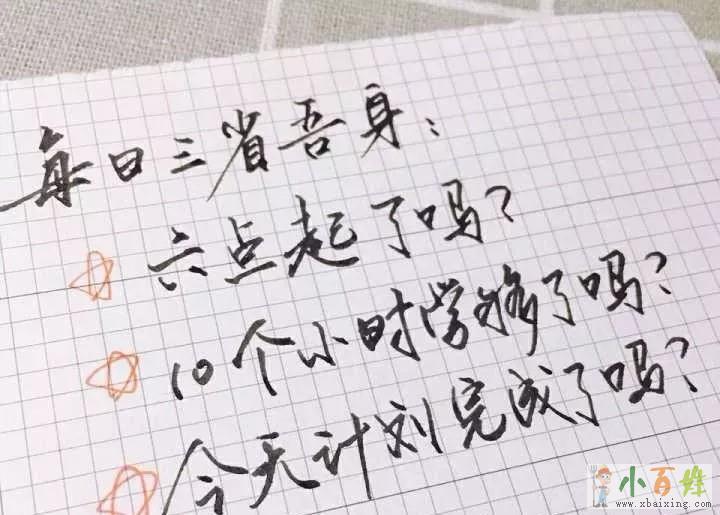 每日三省吾身:
六点起了吗?
10个小时学够了吗?
今天计划完成了吗?
小百姓
www.xbaixing.com